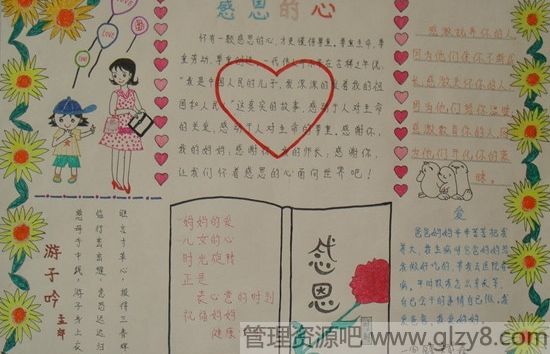 感恩的心
怀有一颗感恩的心,才更懂得尊重。尊重生命,尊
重劳动,尊重创造。一代伟人
在古稀之年说,
"我是中国人民的儿子,我深深的爱着我的祖
国和人民。"这真实的故事,感动于人对生命
的关爱,感动于人对生命的尊重。感谢你,
我的妈妈,感谢你,我的师长,感谢你,
让我们怀着感恩的心面向世界吧!
感激抚养你的人
因为他们使你不断成
长,感激关怀你的人
因为他们给你温暖
感激教育你的人,因
为他们开化你的蒙
昧.
游子吟
孟郊
慈母手中线,游子身上衣
临行密密缝,意恐迟迟归
谁言寸草心,报得三春晖
妈妈的爱
儿女的心
时光旋转
正是
的时刻
祝福妈妈
健康
感恩
爱
爸爸妈妈辛辛苦苦把我
养大,我生病时爸爸妈妈给
我做好吃的,带我去医院看
病,平时教我怎么
管理资源吧www.glzy8.com